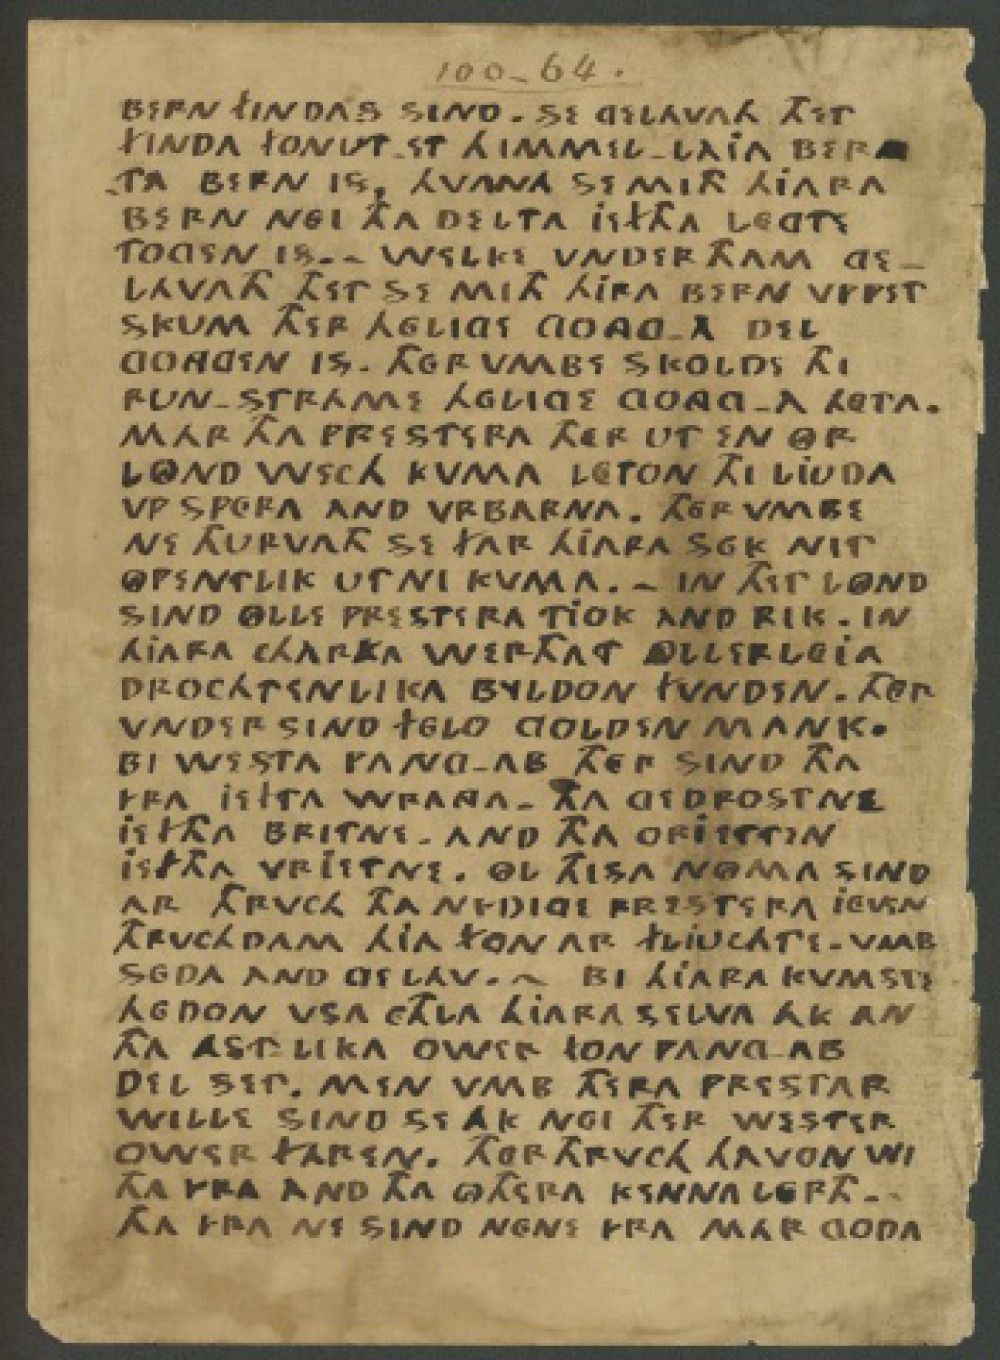 BERN FINDAS SIND. SE GELAVATH THET
FINDA FONUT_ET HIMMEL_LAJA BER
TA BERN IS, HVANA SE MITH HJARA
BERN NEI THA DELTA JEFTHA LEGTE
TOGEN IS.-~ WELKE VNDER THAM GE_
LAVATH THET SE MITH HJRA BERN VPPET
SKUM THER HELIGE GONG_A DEL
GONGEN IS. THER VMBE SKOLDE THI
RUN_STRAME HELIGE GONG_A HETA.
MAR THA PRESTERA THER UT EN OR
LOND WECH KVMA LETON THI LIUDA
VP SPERA AND VRBARNA. THER VMBE
NE THURVATH SE FAR HJARA SEK NIT
OPENTLIK UTNI KVMA.~ IN THET LOND
SIND OLLE PRESTERA TJOK AND RIK. IN
HJARA CHARKA WERTHAT OLLERLEJA
DROCHTENLIKA BYLDON FVNDEN. THER
VNDER SIND FELO GOLDEN MANK.
BI WESTA PANG_AB THER SIND THA
YRA JEFTA WRANGA_ THA GEDROSTNE
JEFTHA BRITNE_ AND THA ORJETTEN
JEFTHA VRJETNE. OL THISA NOMA SIND
AR THRVCH THA NYDIGE PRESTERA JEVEN
THRVCHDAM HJA FON AR FLJUCHTE_VMB
SEDA AND GELAV.~ BI HJARA KVMSTE
HEDON VSA ETHLA HJARA SELVA AK AN
THA AST_LIKA OWER FON PANG_AB
DEL SET. MEN VMB THERA PRESTAR
WILLE SIND SE AK NEI THER WESTER
OWER FAREN. THER THRVCH HAVON WI
THA YRA AND THA OTHERA KENNA LERTH.~
THA YRA NE SIND NENE YRA MAR GODA